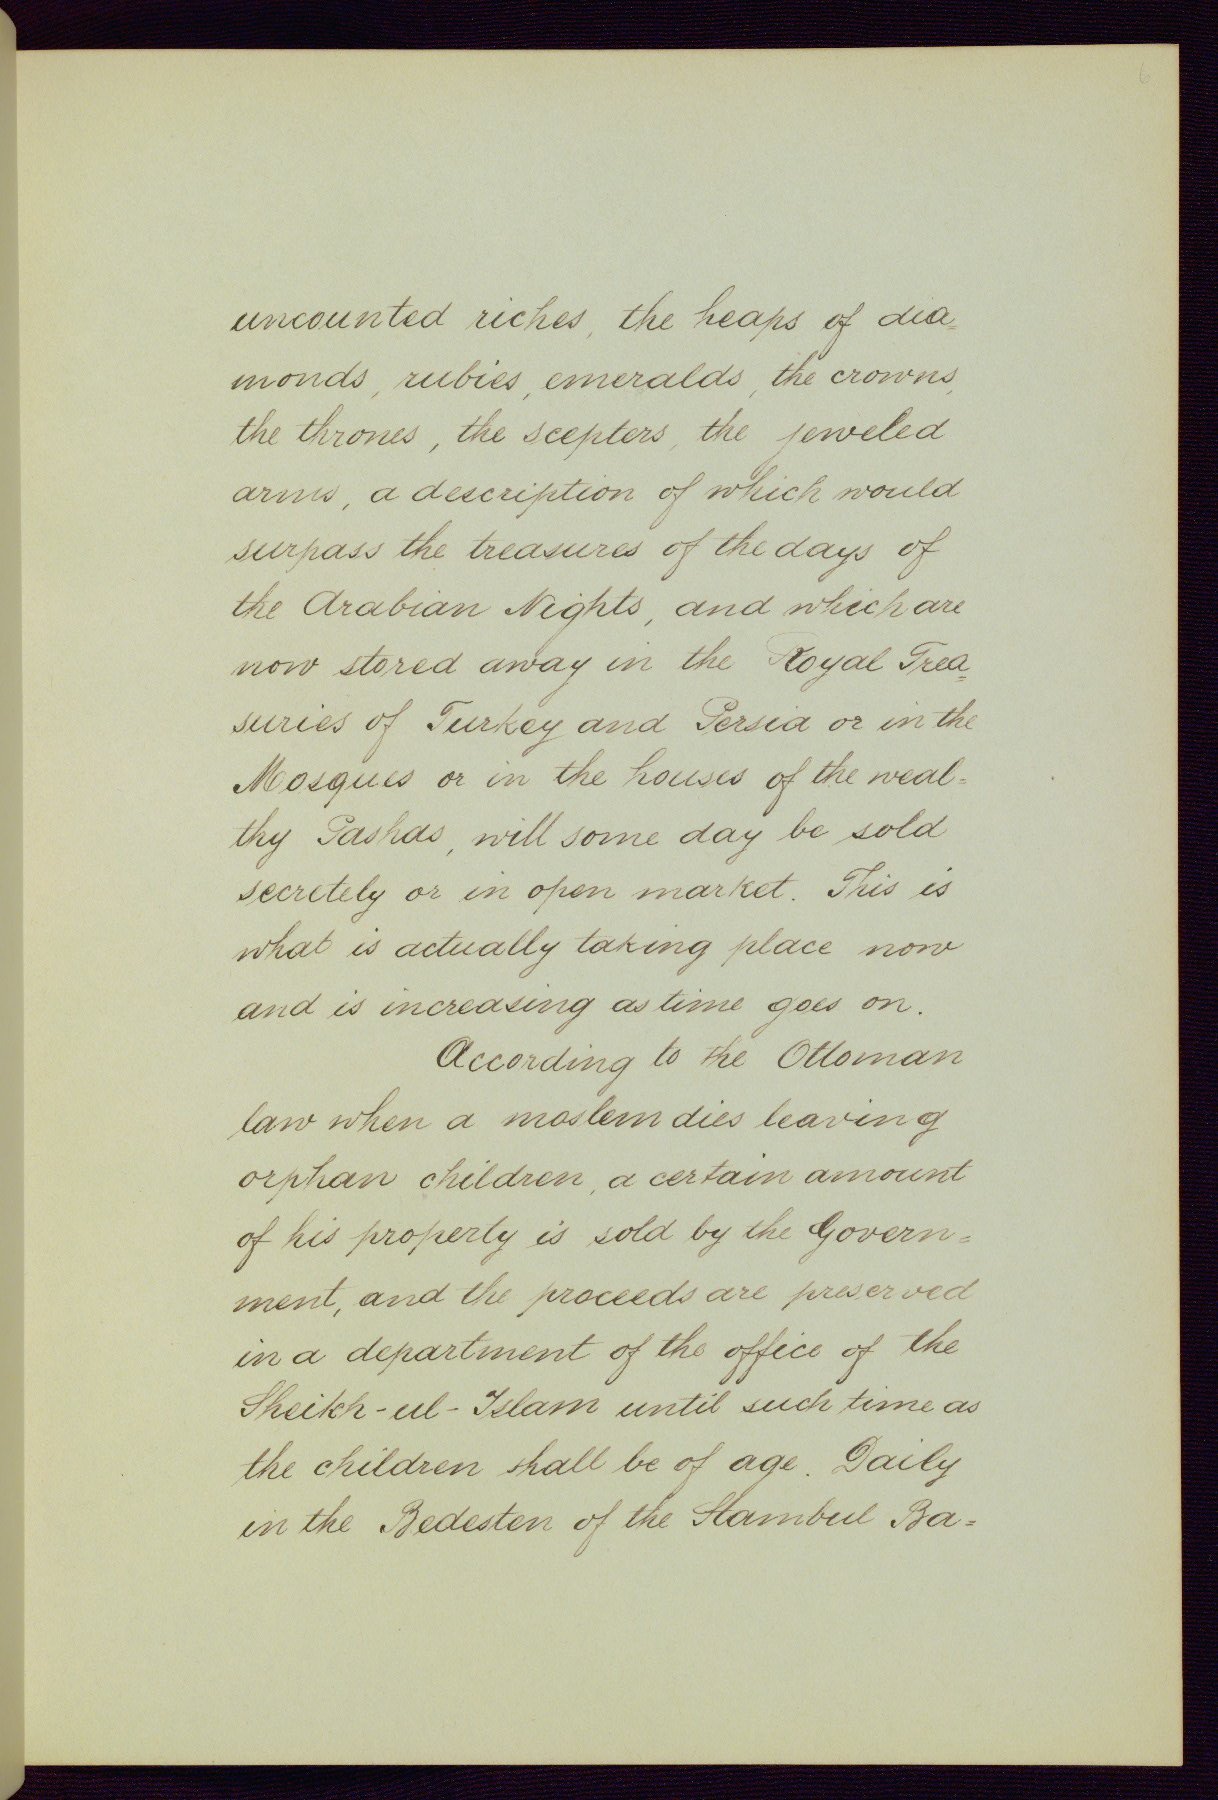 6
uncounted riches, the heaps of dia=
monds, rubies, emeralds, the crowns,
the thrones, the scepters, the jeweled
arms, a description of which would
surpass the treasures of the days of
the Arabian Nights, and which are
now stored away in the Royal Trea=
suries of Turkey and Persia or in the
Mosques or in the houses of the weal=
thy Pashas, will some day be sold
secretely or in open market. This is
what is actually taking place now
and is increasing as time goes on.
According to the Ottoman
law when a moslem dies leaving
orphan children, a certain amount
of his property is sold by the Govern=
ment, and the proceeds are preserved
in a department of the office of the
Sheikh-ul-Islam until such time as
the children shall be of age. Daily
in the Bedesten of the Stambul Ba=